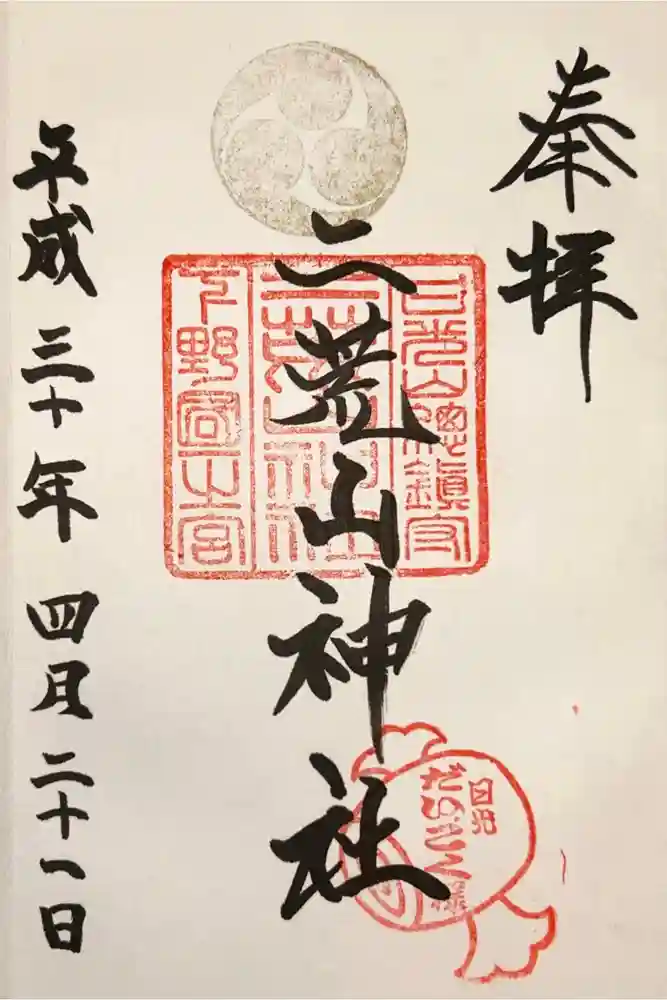 奉拝
日光山總鎮守
二荒山神社
下野国一之宮
二荒山神社
日光
だいこく様
平成三十年四月二十一日